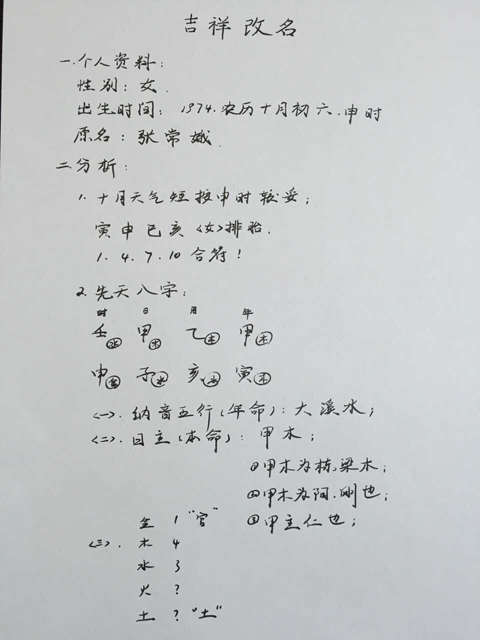 吉祥改名
一.个人资料:
性别:女.
出生时间:1974.农历十月初六.申时
原名:张常娥.
二分析:
1.十月天气短按申时较妥;
寅申巳亥<女>排胎.
1.4.7.10合符!
2.先天八字:
时 日 月 年
壬水 甲木 乙木 甲木
申金 子水 亥水 寅木
<一>.纳音五行(年命):大溪水;
<二>.日主(本命):甲木;
①甲木为栋,梁木;
②甲木为阳.刚也;
③甲主仁也;
金 1 "官"
<三>.木 4
水 3
火 ?
土 ? "土"